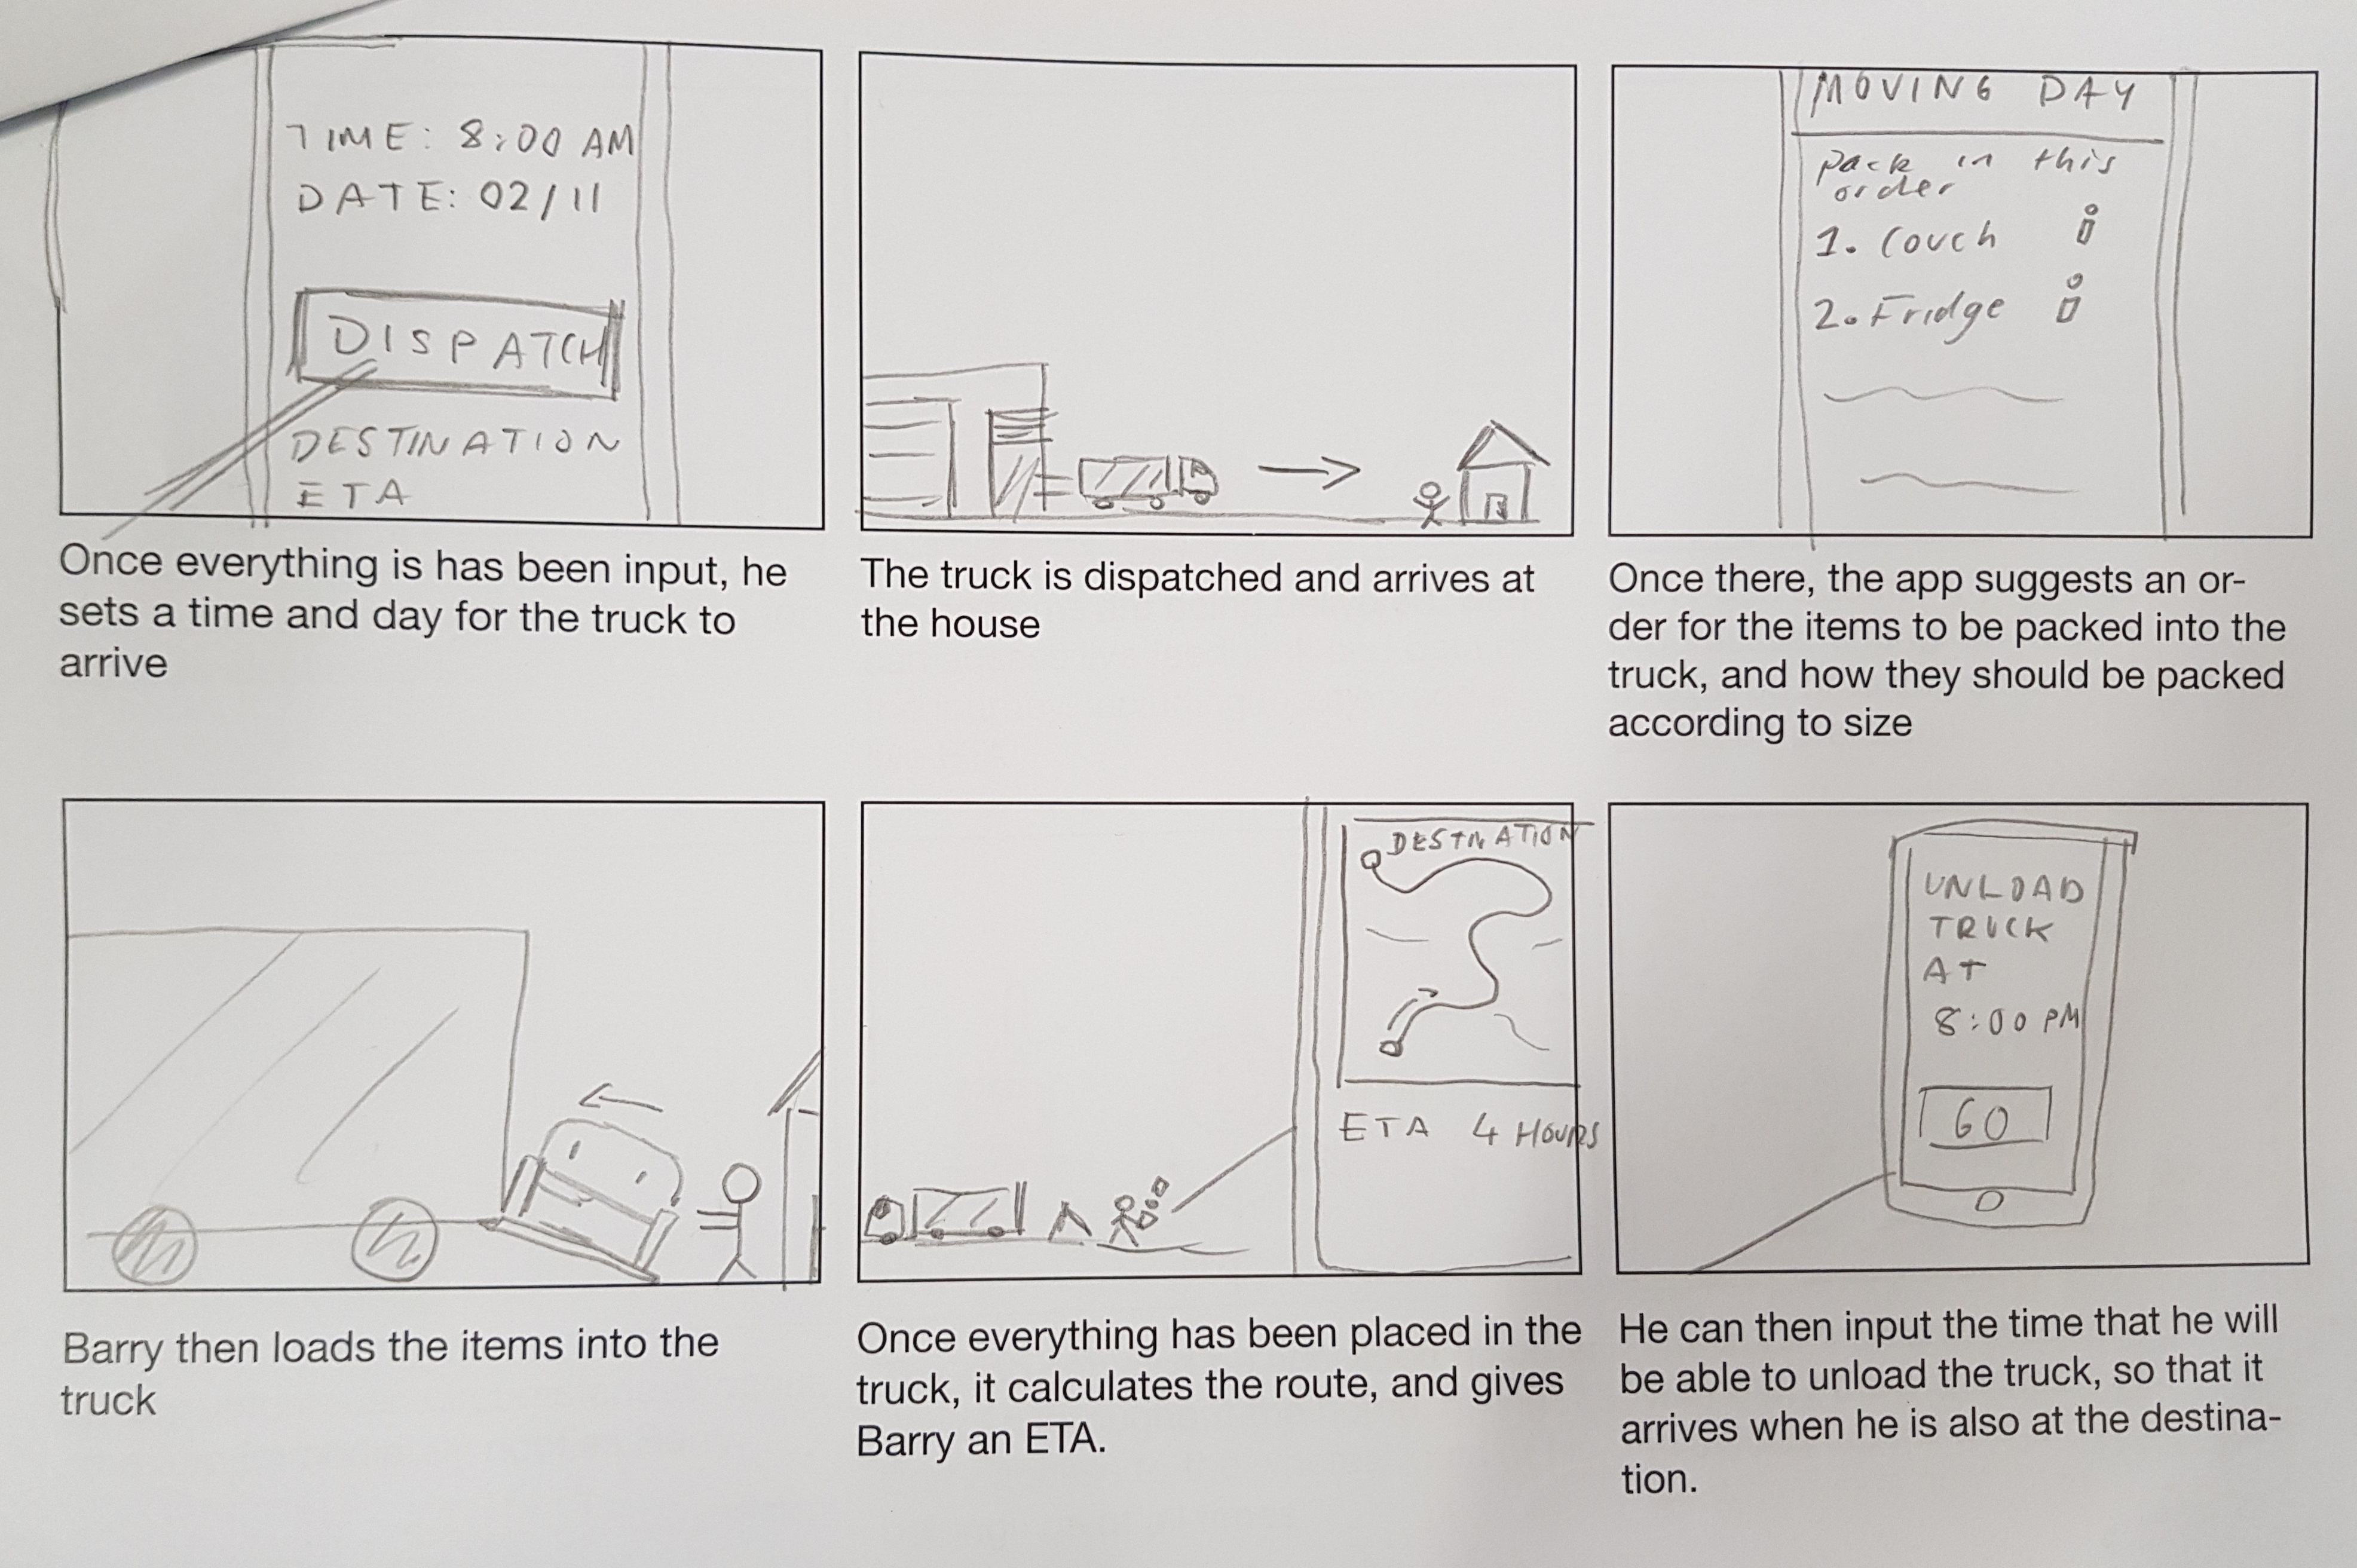 TIME: 8:00 AM
DATE: 02/11
DISPATCH
DESTINATION
ETA
Once everything is has been input, he
sets a time and day for the truck to
arrive
The truck is dispatched and arrives at
the house
MOVING DAY
pack in this
order
1. Couch i
2. Fridge i
Once there, the app suggests an or-
der for the items to be packed into the
truck, and how they should be packed
according to size
Barry then loads the items into the
truck
DESTINATION
ETA 4 HOURS
Once everything has been placed in the
truck, it calculates the route, and gives
Barry an ETA.
UNLOAD
TRUCK
AT
8:00 PM
GO
He can then input the time that he will
be able to unload the truck, so that it
arrives when he is also at the destina-
tion.